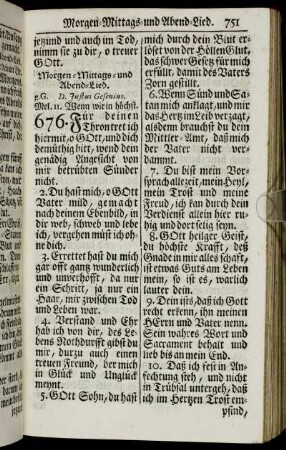 Morgen-Mittags-und Abend-Lied. 751
jetzund und auch im Tod,
nimm sie zu dir, o treuer
GOtt.
Morgen-Mittags-und
Abend-Lied.
D. Justus Gesenius.
Mel. 11. Wenn wir in höchst.
676. Für deinen
Thron tret ich
hiermit, o GOtt, und dich
demüthig bitt, wend dein
genädig Angesicht von
mir betrübten Sünder
nicht.
2. Du hast mich, o GOtt
Vater mild, gemacht
nach deinem Ebenbild, in
dir web, schweb und lebe
ich, vergehen müst ich oh-
ne dich.
3. Errettet hast du mich
gar offt gantz wunderlich
und unverhofft, da nur
ein Schritt, ja nur ein
Haar, mir zwischen Tod
und Leben war.
4. Verstand und Ehr
hab ich von dir, des Le-
bens Nothdurfft gibst du
mir, durzu auch einen
treuen Freund, der mich
in Glück und Unglück
meynt.
5. GOtt Sohn, du hast
mich durch dein Blut er-
löset von der Höllen Glut,
das schwer Gesetz für mich
erfüllt, damit des Vaters
Zorn gestillt.
6. Wenn Sünd und Sa-
tan mich anklagt, und mir
das Hertz im Leib verzagt,
alsdenn brauchst du dein
Mittler-Amt, daß mich
der Vater nicht ver-
dammt.
7. Du bist mein Vor-
sprach allezeit, mein Heyl,
mein Trost und meine
Freud, ich kan durch dein
Verdienst allein hier ru-
hig und dort selig seyn.
8. GOtt heilger Geist,
du höchste Krafft, deß
Gnade in mir alles schafft,
ist etwas Guts am Leben
mein, so ist es, warlich
lauter dein.
9. Dein ists, daß ich GOtt
recht erkenn, ihn meinen
HErrn und Vater nenn.
Sein wahres Wort und
Sacrament behalt und
lieb bis an mein End.
10. Daß ich fest in An-
fechtung steh, und nicht
in Trübsal untergeh, daß
ich im Hertzen Trost em-
pfind,